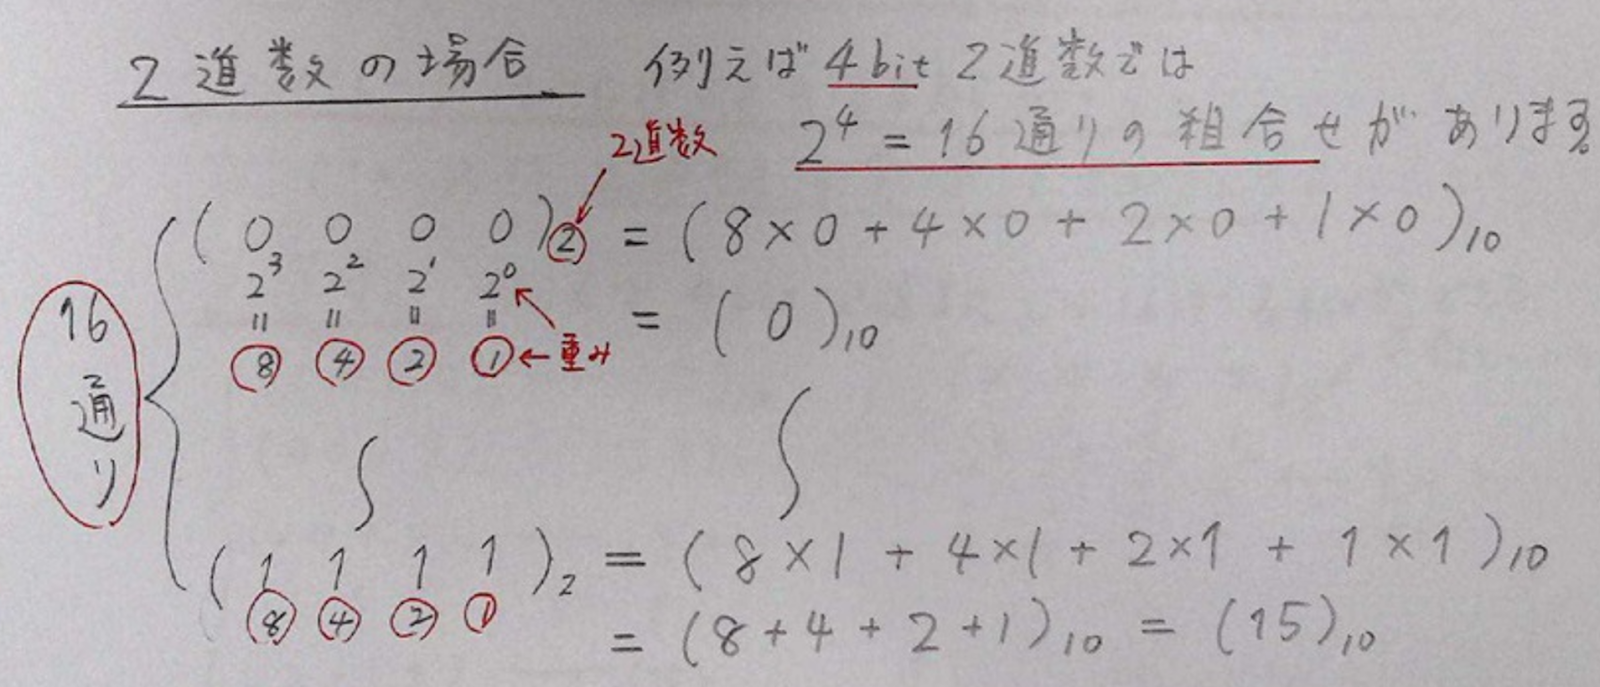 2進数の場合 例えば 4bit 2進数では
2⁴ = 16通りの組合せがあります。
2進数
( 0 0 0 0 )② = ( 8×0 + 4×0 + 2×0 + 1×0 )₁₀
2³ 2² 2¹ 2⁰
= ( 0 )₁₀
⑧ ④ ② ① ← 重み
16通り
( 1 1 1 1 )₂ = ( 8×1 + 4×1 + 2×1 + 1×1 )₁₀
⑧ ④ ② ①
= ( 8 + 4 + 2 + 1 )₁₀ = ( 15 )₁₀